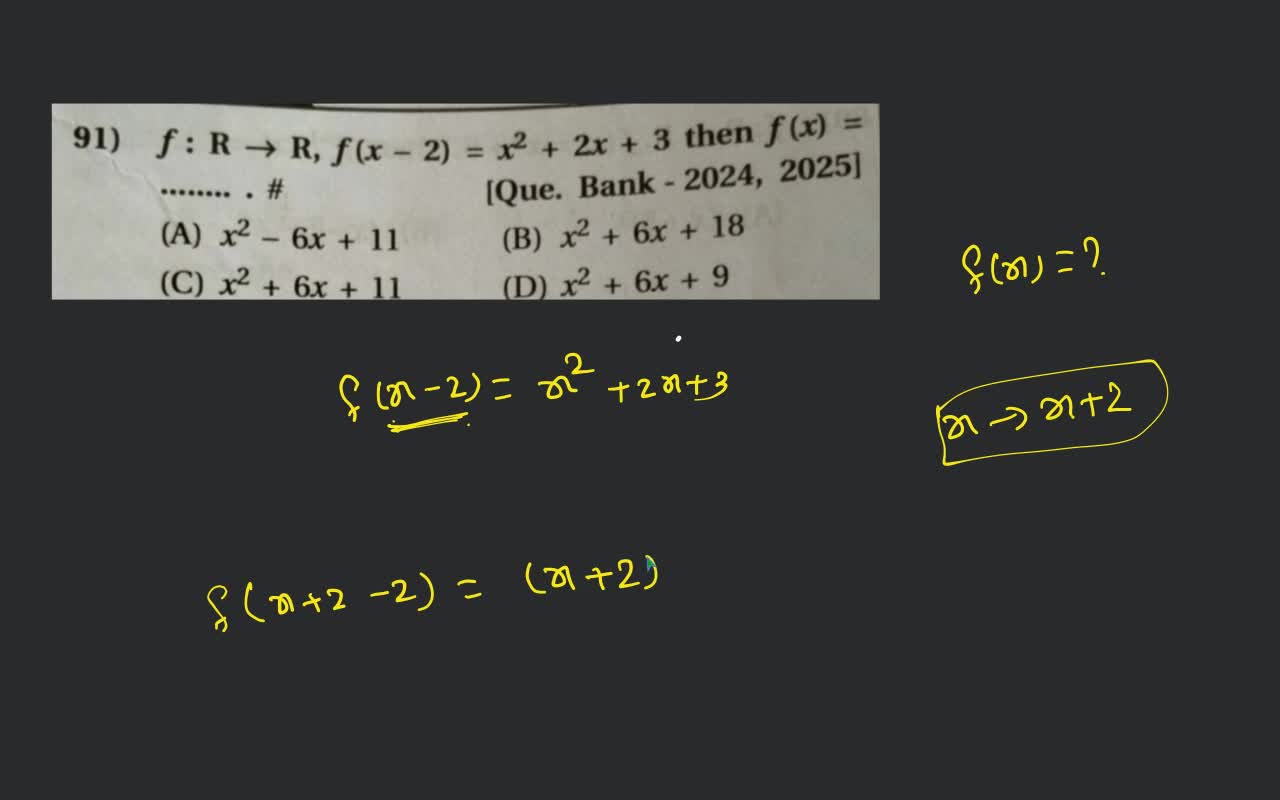 91) f : R → R, f(x − 2) = x² + 2x + 3 then f(x) =
........ . # [Que. Bank - 2024, 2025]
(A) x² − 6x + 11 (B) x² + 6x + 18
(C) x² + 6x + 11 (D) x² + 6x + 9
f(x) = ?
f(x−2) = x² + 2x + 3
x → x+2
f(x+2 −2) = (x+2)